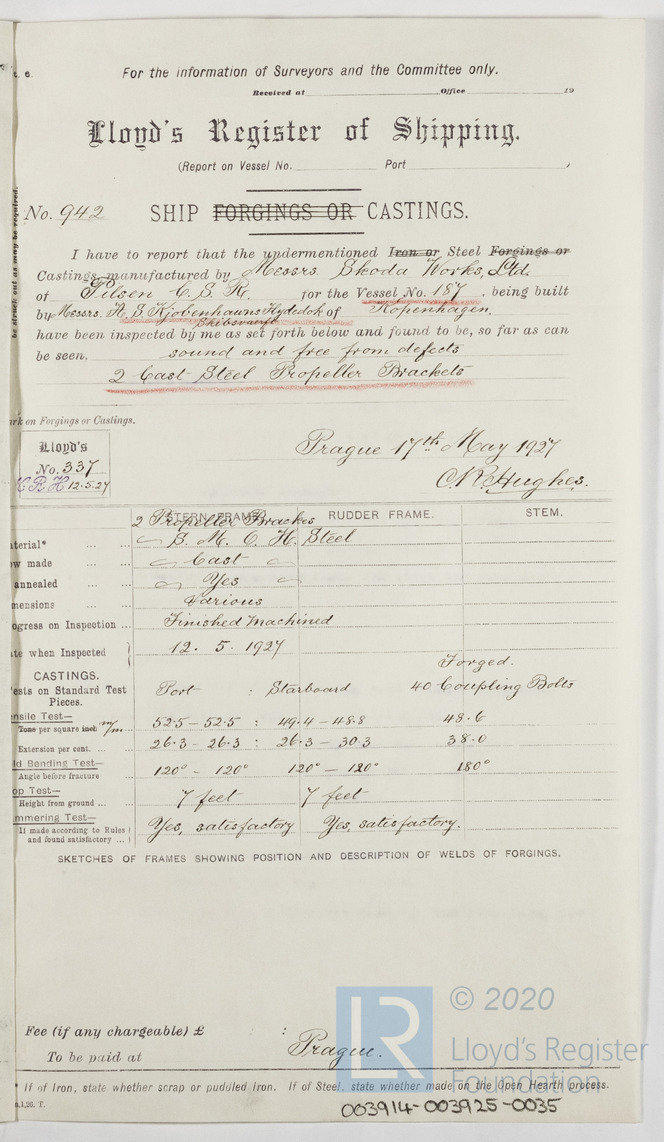 t. 6.
For the information of Surveyors and the Committee only.
Received at Office 19
Lloyd's Register of Shipping.
(Report on Vessel No. Port ,
be struck out as may be required.
No. 942 SHIP FORGINGS OR CASTINGS.
I have to report that the undermentioned Iron or Steel Forgings or
Castings, manufactured by Messrs. Skoda Works, Ltd.
of Pilsen C. S. R. for the Vessel No. 187, being built
by Messrs. A. S. Kjobenhavns Flydedok of Kopenhagen.
Skibsvaerft
have been inspected by me as set forth below and found to be, so far as can
be seen. sound and free from defects
2 Cast Steel Propeller Brackets
rk on Forgings or Castings.
Lloyd's
No. 337
C R H 12.5.27
Prague 17th May 1927
C.R. Hughes.
STERN FRAME. RUDDER FRAME. STEM.
2 Propeller Brackets
aterial* S. M. O. H. Steel
ow made Cast
annealed Yes
mensions Various
ogress on Inspection Finished Machined
te when Inspected 12. 5. 1927
CASTINGS.
Forged.
ests on Standard Test Pieces. Port : Starboard 40 Coupling Bolts
nsile Test—
Tons per square inch m/m 52.5 - 52.5 : 49.4 - 48.8 48.6
Extension per cent. 26.3 - 26.3 : 26.3 - 30.3 38.0
ld Bending Test—
Angle before fracture 120° - 120° 120° - 120° 180°
op Test—
Height from ground 7 feet 7 feet
mmering Test—
If made according to Rules and found satisfactory Yes, satisfactory Yes, satisfactory.
SKETCHES OF FRAMES SHOWING POSITION AND DESCRIPTION OF WELDS OF FORGINGS.
Fee (if any chargeable) £ :
To be paid at Prague.
* If of Iron, state whether scrap or puddled Iron. If of Steel, state whether made on the Open Hearth process.
1,26. T.
003914-003925-0035
LR
© 2020
Lloyd's Register
Foundation